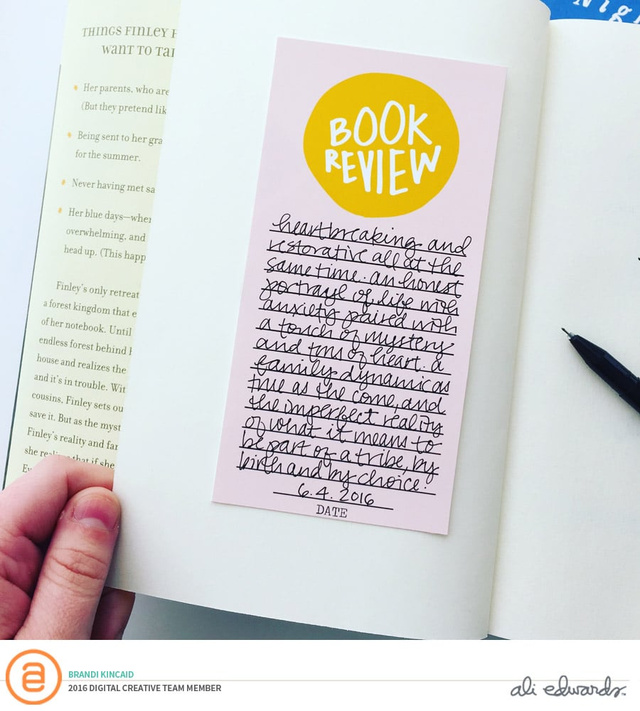 THINGS FINLEY
WANT TO
Her parents, who are
(But they pretend
Being sent to her
for the summer.
Never having met
Her blue days—when
overwhelming, and
head up. (This
Finley's only retreat
a forest kingdom that
of her notebook. Until
endless forest behind
house and realizes the
and it's in trouble.
cousins, Finley sets
save it. But as the
Finley's reality and
she
BOOK
REVIEW
heartbreaking and
restorative all at the
same time. an honest
portrayl of life with
anxiety paired with
a touch of mystery
and tons of heart. a
family dynamic as
true as the come, and
the imperfect reality
of what it means to
be part of a tribe, by
birth and by choice.
6.4.2016
DATE
a
BRANDI KINCAID
2016 DIGITAL CREATIVE TEAM MEMBER
ali edwards.